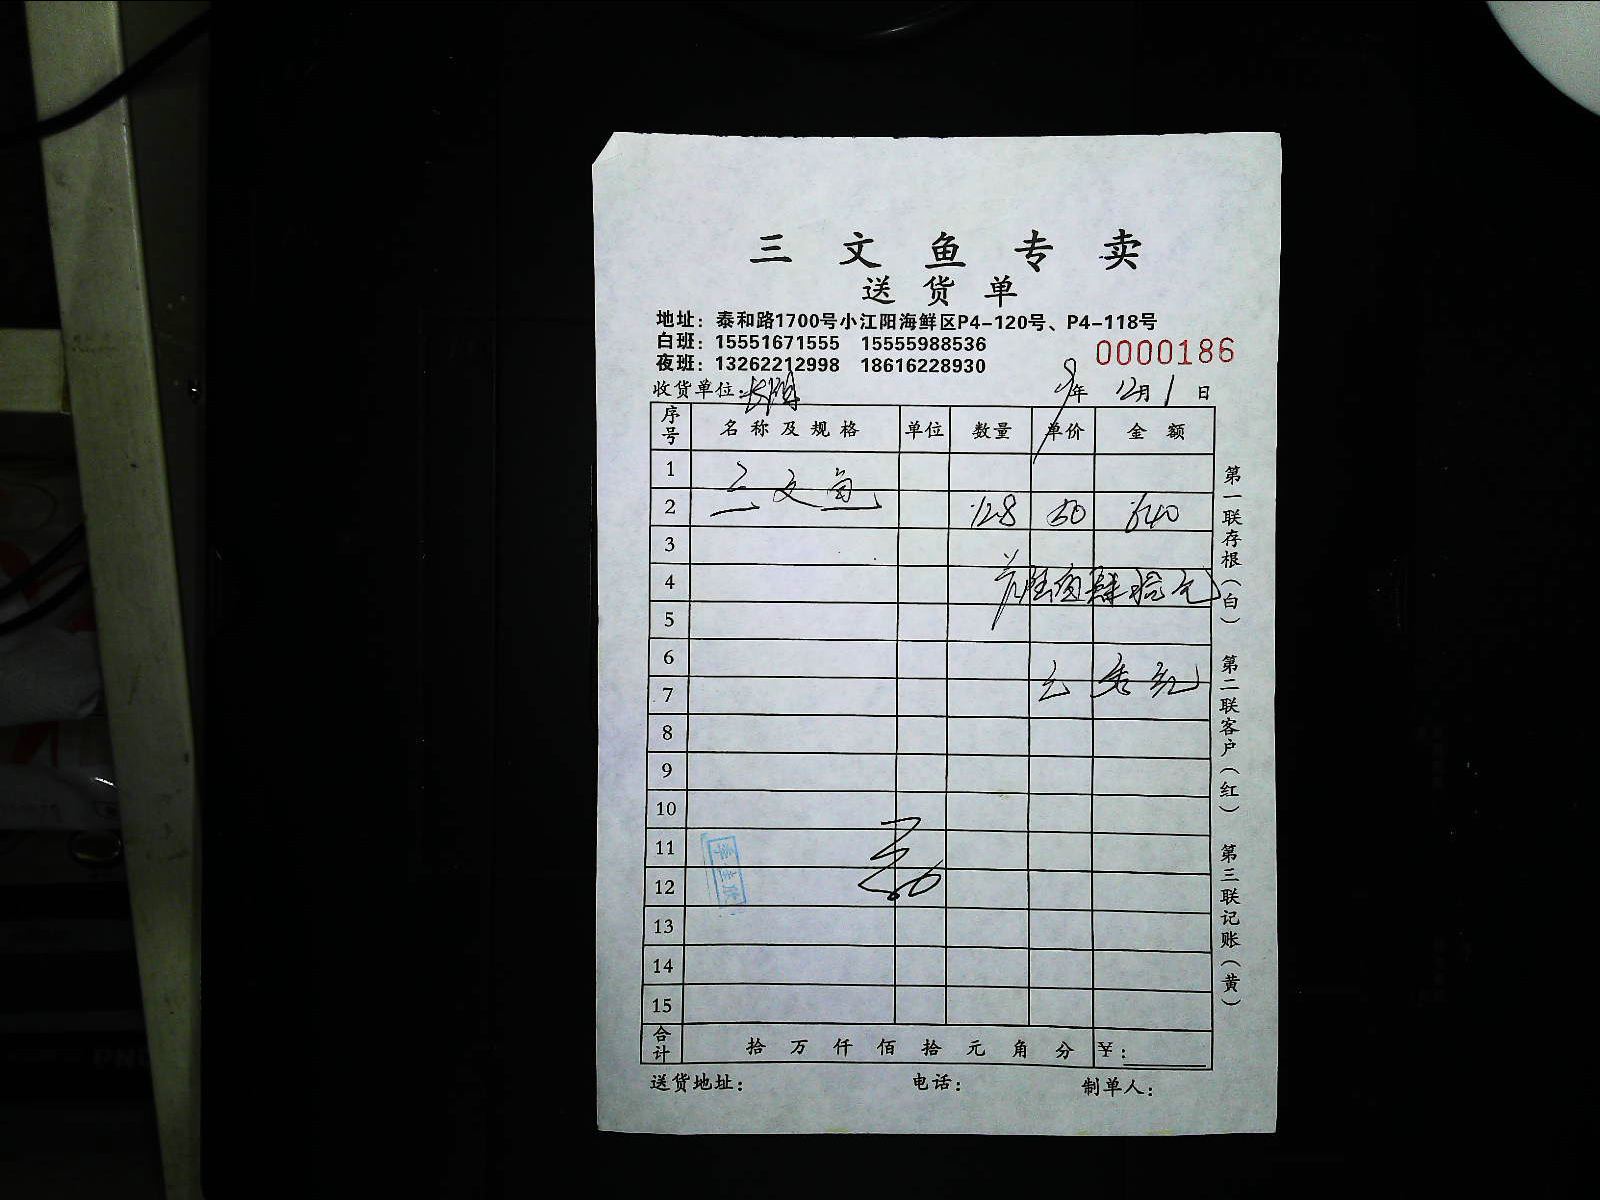 三文鱼专卖
送货单
地址：泰和路1700号小江阳海鲜区P4-120号、P4-118号
白班：15551671555 15555988536
夜班：13262212998 18616228930
0000186
收货单位：
9年 12月1日
序号 名称及规格 单位 数量 单价 金额
1
三文鱼
2 12.8 50 640
3
陆佰肆拾元
4
5
6
7
8
9
10
11
12
13
14
15
合计 拾 万 仟 佰 拾 元 角 分 ￥：
送货地址： 电话： 制单人：
第一联存根（白） 第二联客户（红） 第三联记账（黄）